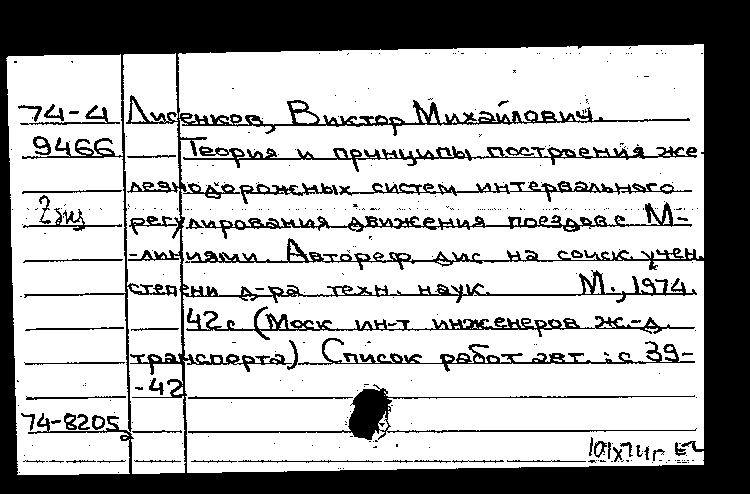 74-4 Лисенков, Виктор Михайлович.
9466 Теория и принципы построения же-
лезнодорожных систем интервального
2 экз регулирования движения поездов с М-
-линиями. Автореф. дис. на соиск. учен.
степени д-ра техн. наук. М., 1974.
42 с (Моск ин-т инженеров ж.-д.
транспорта) Список работ авт.: с 39-
-42
74-8205